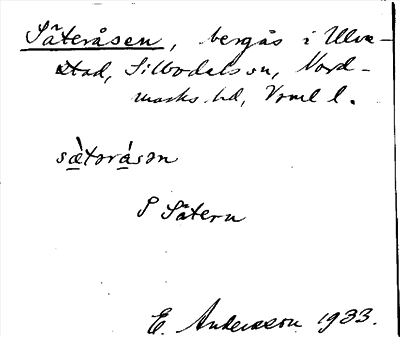 Säteråsen, bergås i Ulve-
stad, Silbodals sn, Nord-
marks hd, Vrml l.
sæ̀toråsən
P Sätern
E. Andersson 1933.